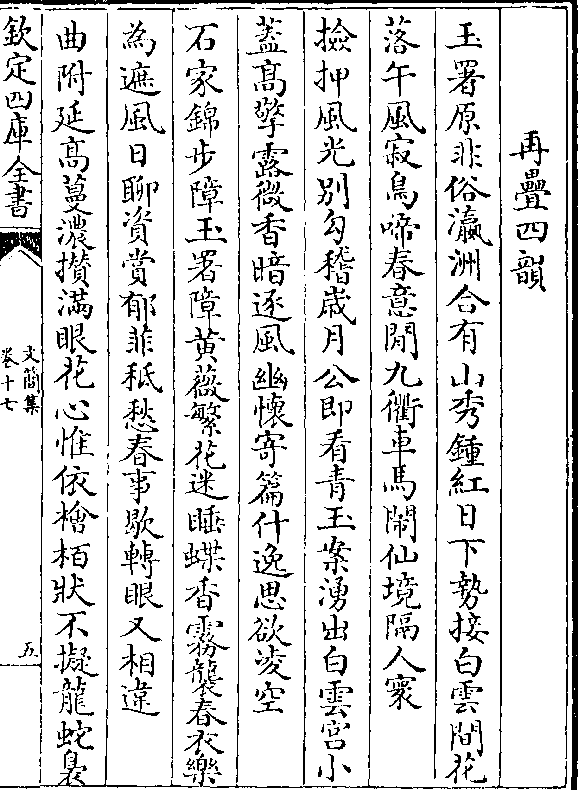 再疊四韻
玉署原非俗瀛洲合有山秀鍾紅日下勢接白雲間花
落午風寂鳥啼春意閒九衢車馬鬧仙境隔人寰
撿押風光別勾稽歲月公即看青玉案湧出白雲宮小
蓋髙擎露微香暗逐風幽懷寄篇什逸思欲凌空
石家錦步障玉署障黄薇繁花迷睡蝶香霧襲春衣樂
為遮風日聊資賞郁菲秪愁春事歇轉眼又相違
曲附延髙蔓濃攅滿眼花心惟依檜栢狀不擬龍蛇裊
欽定四庫全書
文簡集
卷十七
五